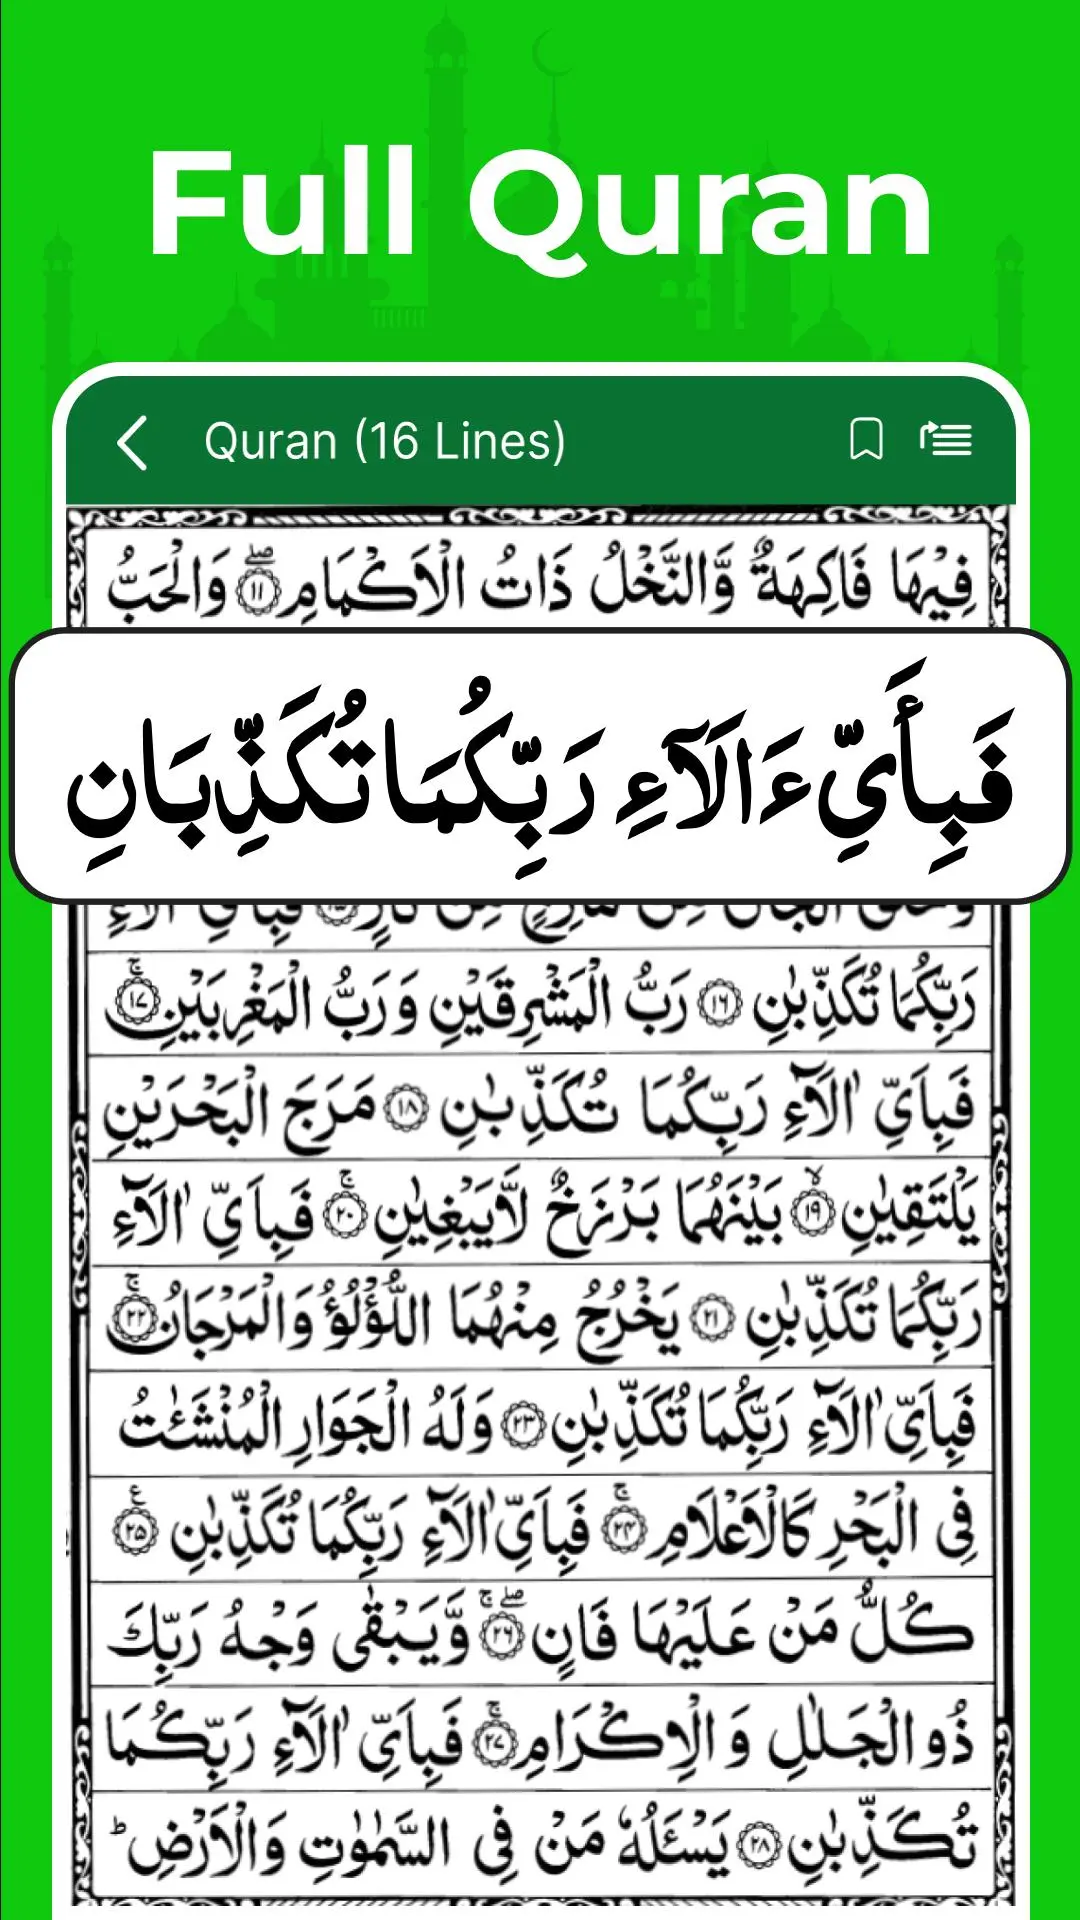 Full Quran
Quran (16 Lines)
فِيْهَا فَاكِهَةٌ وَّالنَّخْلُ ذَاتُ الْاَكْمَامِ ۖ ۝۱۱ وَالْحَبُّ
فَبِأَيِّ ءَالَآءِ رَبِّكُمَا تُكَذِّبَانِ
رَبِّكُمَا تُكَذِّبٰنِ ۝۱۶ رَبُّ الْمَشْرِقَيْنِ وَرَبُّ الْمَغْرِبَيْنِ ۚ ۝۱۷
فَبِاَيِّ اٰلَآءِ رَبِّكُمَا تُكَذِّبٰنِ ۝۱۸ مَرَجَ الْبَحْرَيْنِ
يَلْتَقِيٰنِ ۙ ۝۱۹ بَيْنَهُمَا بَرْزَخٌ لَّايَبْغِيٰنِ ۚ ۝۲۰ فَبِاَيِّ اٰلَآءِ
رَبِّكُمَا تُكَذِّبٰنِ ۝۲۱ يَخْرُجُ مِنْهُمَا اللُّؤْلُؤُ وَالْمَرْجَانُ ۚ ۝۲۲
فَبِاَيِّ اٰلَآءِ رَبِّكُمَا تُكَذِّبٰنِ ۝۲۳ وَلَهُ الْجَوَارِ الْمُنْشَئٰتُ
فِى الْبَحْرِ كَالْاَعْلَامِ ۚ ۝۲۴ فَبِاَيِّ اٰلَآءِ رَبِّكُمَا تُكَذِّبٰنِ ۝۲۵ ع
كُلُّ مَنْ عَلَيْهَا فَانٍ ۖ ۚ ۝۲۶ وَّيَبْقٰى وَجْهُ رَبِّكَ
ذُو الْجَلٰلِ وَالْاِكْرَامِ ۚ ۝۲۷ فَبِاَيِّ اٰلَآءِ رَبِّكُمَا
تُكَذِّبٰنِ ۝۲۸ يَسْئَلُهٗ مَنْ فِى السَّمٰوٰتِ وَالْاَرْضِ ؕ